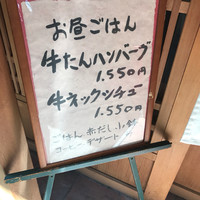 お昼ごはん
牛たんハンバーグ
1.550円
牛ネックシチュー
1.550円
ごはん 赤だし 小鉢
デザート